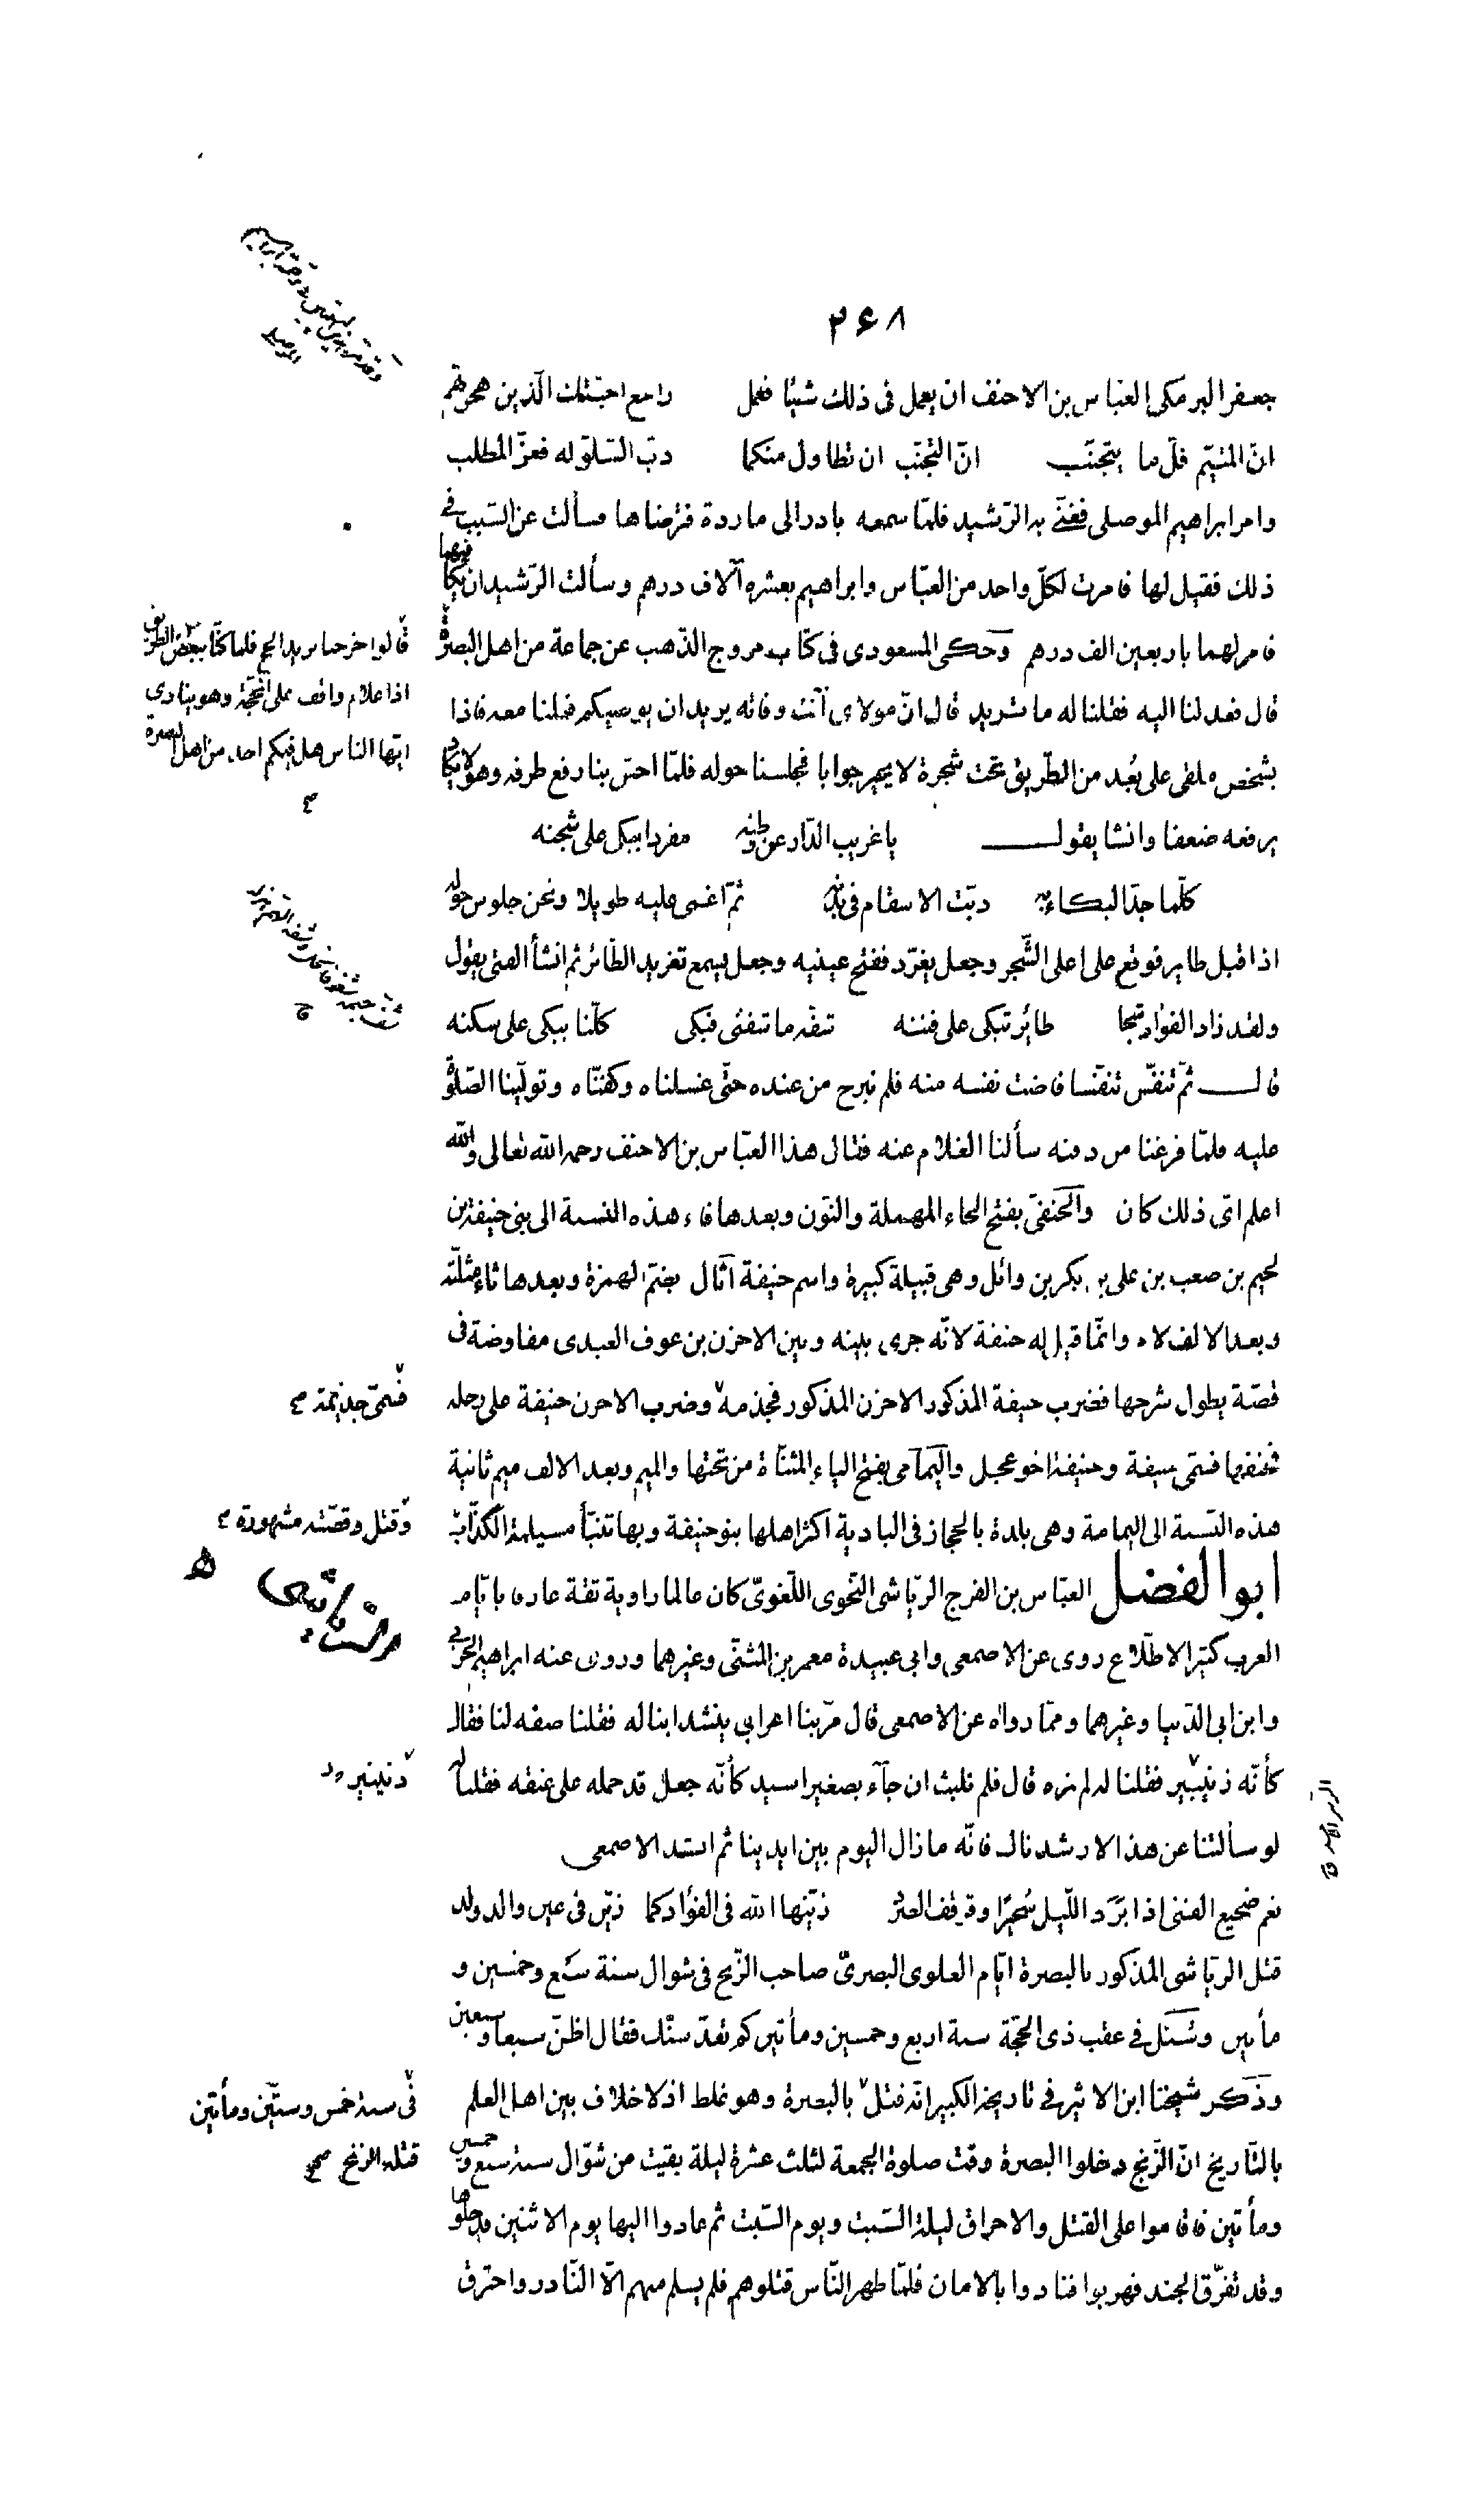 ٢٦٨
جعفر البرمكى العبّاس بن الاحنف ان يعمل فى ذلك شيئا فعمل راجع احبّتك الّذين هجرتهم
انّ المتيّم قلّ ما يتجنّب انّ التّجنّب ان تطاول منكما دبّ السّلوّ له فعزّ المطلب
وامر ابراهيم الموصلى فغنّى به الرّشيد فلمّا سمعه بادر الى ماردة فترضاها فسألت عن السّبب فى
ذلك فقيل لها فامرت لكلّ واحد من العبّاس وابراهيم بعشره آلاف درهم وسألت الرّشيد ان يكافيهما
فامر لهما باربعين الف درهم وحكى المسعودى فى كتاب مروج الذّهب عن جماعة من اهل البصرة
قالوا خرجنا نريد الحج فلما كنّا ببعض الطريق
اذا غلام واقف على المحجّة وهو ينادى
ايّها الناس هل فيكم احد من اهل البصرة
صح
قال فعدلنا اليه فقلنا له ما تريد قال انّ مولاى آنت وفاته يريد ان يوصيكم فملنا معه فاذا
بشخص ملقى على بُعد من الطّريق تحت شجرة لا يحير جوابا فجلسنا حوله فلمّا احسّ بنا رفع طرفه وهو لا يكاد
يرفعه ضعفا وانشا يقول يا غريب الدّار عن وطنه مفردا يبكى على شجنه
كلّما جدّ البكاء به دبّت الاسقام فى بدنه ثمّ اغمى عليه طويلا ونحن جلوس حوله
اذ اقبل طاير فوقع على اعلى الشّجر وجعل يغرّد ففتح عينيه وجعل يسمع تغريد الطّائر ثم انشأ الفتى يقول
ولقد زاد الفؤاد شجا طائر تبكى على فننه شفّه ما شفّنى فبكى كلّنا يبكى على سكنه
قال ثمّ تنفّس تنفّسا فاضت نفسه منه فلم نبرح من عنده حتّى غسلناه وكفنّاه وتولّينا الصّلوة
عليه فلمّا فرغنا من دفنه سألنا الغلام عنه فقال هذا العبّاس بن الاحنف رحمه الله تعالى والله
اعلم اىّ ذلك كان والحنفىّ بفتح الحاء المهملة والنّون وبعدها فاء هذه النسبة الى بنى حنيفة بن
لجيم بن صعب بن على بن بكر بن وائل وهى قبيلة كبيرة واسم حنيفة أثال بضمّ الهمزة وبعدها ثاء مثلّثه
وبعد الالف لام وانّما قيل له حنفة لانّه جرى بينه وبين الاحزن بن عوف العبدى مفاوضة فى
قصّة يطول شرحها فضرب حنيفة المذكور الاحزن المذكور فجذمه وضرب الاحزن حنيفة على رجله
فسمّى جذيمة صح
فحنفها فسمّى حنيفة وحنيفة اخو عجل واليمامى بفتح الياء المثنّاة من تحتها والميم وبعد الالف ميم ثانية
هذه النّسبة الى اليمامة وهى بلدة بالحجاز فى البادية اكثر اهلها بنو حنيفة وبها تنبّأ مسيلمة الكذّاب
وقتل وقصّته مشهورة صح
ابو الفضل العبّاس بن الفرج الرّياشى النّحوى اللّغوىّ كان عالما راوية ثقة عارفا بايّام
الرّياشى
العرب كثير الاطّلاع روى عن الاصمعى وابى عبيدة معمر بن المثنّى وغيرهما وروى عنه ابراهيم الحربى
وابن ابى الدّنيا وغيرهما وممّا رواه عن الاصمعى قال مرّ بنا اعرابى ينشد ابنا له فقلنا صفه لنا فقال
كأنّه دنينير فقلنا له لم نره قال فلم نلبث ان جآء بصغير اسيد كأنّه جعل قد حمله على عنقه فقلنا له
دنينير
لو سألتنا عن هذا لارشدناك فانّه ما زال اليوم بين ايدينا ثم انشد الاصمعى
نعم ضجيع الفتى اذا بَرَد اللّيل سُحيرًا وقرقف الصرد زيّنها الله فى الفؤاد كما زيّن فى عين والد ولد
قتل الرّياشى المذكور بالبصرة ايّام العلوى البصرىّ صاحب الزّنج فى شوال سنة سبع وخمسين و
مأتين وسئل فى عقب ذى الحجّة سنة اربع وخمسين ومأتين كم تعدّ سنّك فقال اظنّ سبعا وسبعين
وذكر شيخنا ابن الاثير فى تاريخه الكبير انّه قتل بالبصرة وهو غلط اذ لا خلاف بين اهل العلم
فى سنة خمس وستّين ومأتين
قتله الزنج صح
بالتّاريخ انّ الزّنج دخلوا البصرة وقت صلوة الجمعة لثلث عشرة ليلة بقيت من شوّال سنة سبع وخمسين
ومأتين فاقاموا على القتل والاحراق ليلة السّبت ويوم السّبت ثم عادوا اليها يوم الاثنين فدخلوها
وقد تفرّق الجند فهربوا فنادوا بالامان فلمّا ظهر النّاس قتلوهم فلم يسلم منهم الّا النّادر واحترق